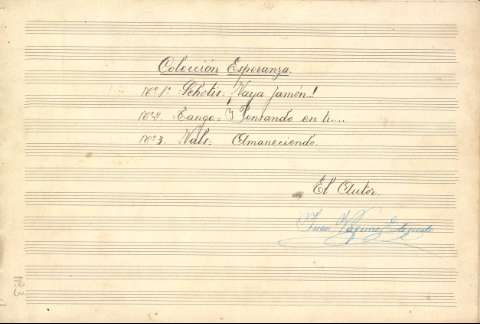 Colección Esperanza.
Nº 1º Schotis: ¡Vaya Jamón..!
Nº 2. Tango: Pensando en ti...
Nº 3. Vals: Amaneciendo.
El Autor